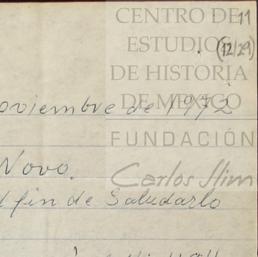 CENTRO DE
11
ESTUDIOS
(12/29)
DE HISTORIA
DE MEXICO
oviembre de 1972
FUNDACIÓN
Novo.
Carlos Slim
l fin de Saludarlo